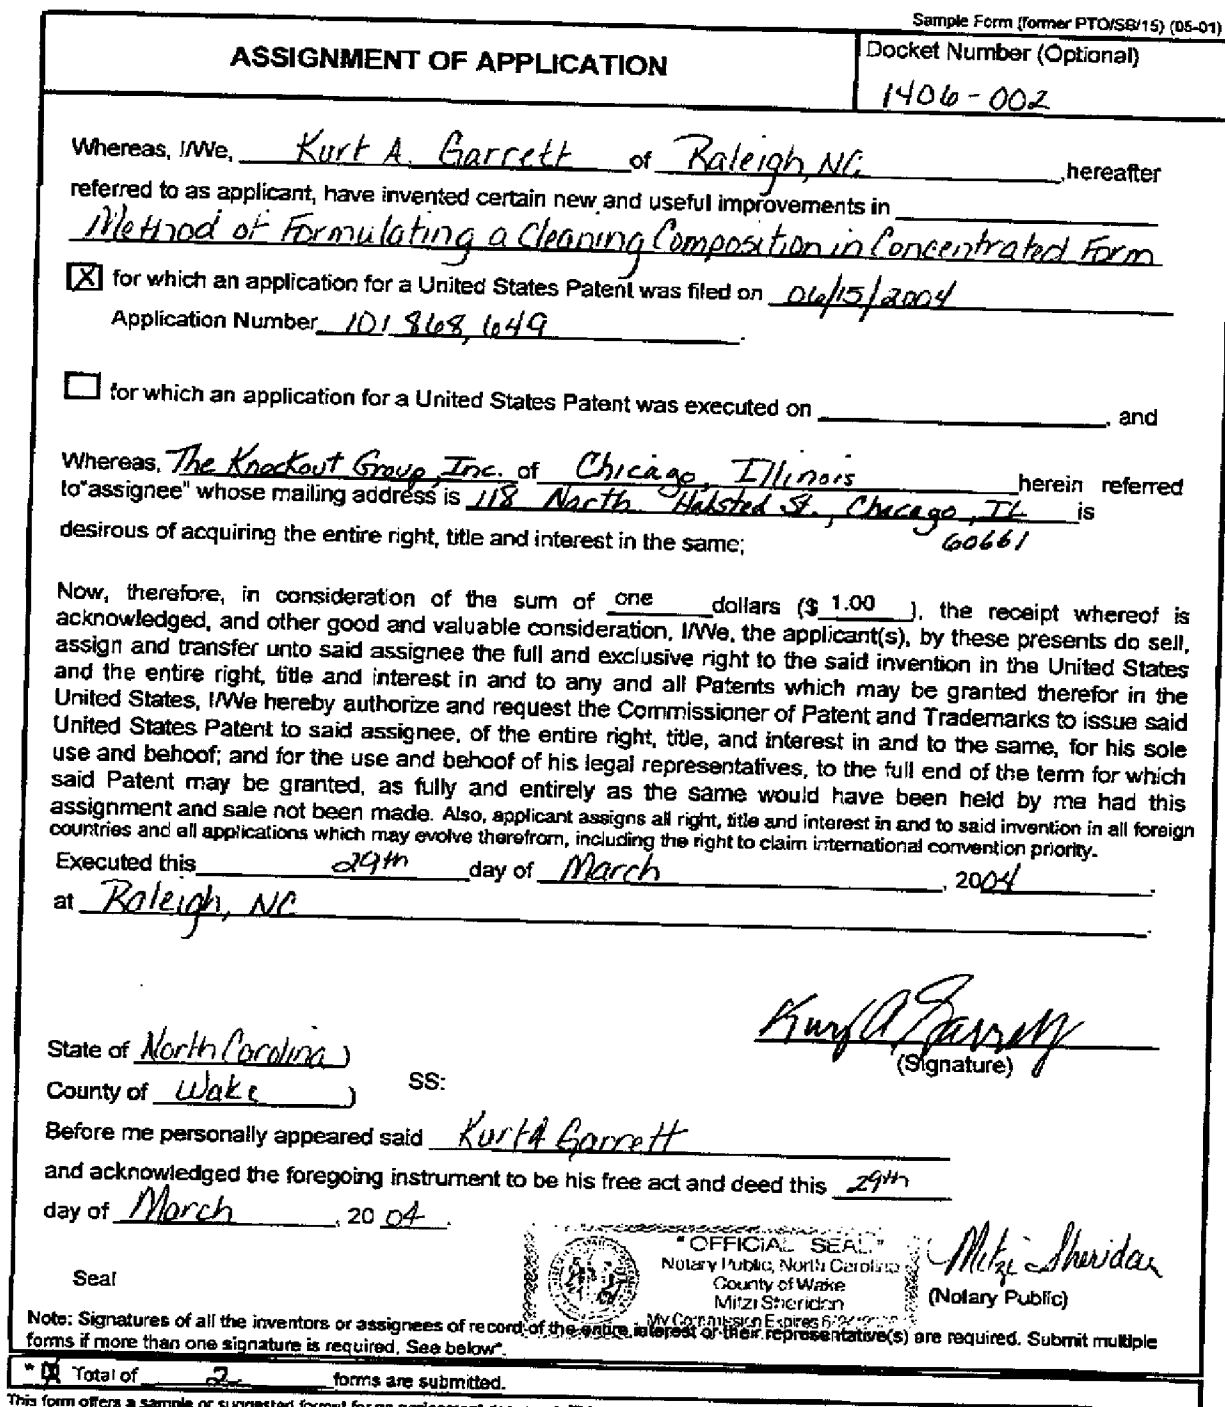 Sample Form (former PTO/SB/15) (05-01)
ASSIGNMENT OF APPLICATION
Docket Number (Optional)
1406-002
Whereas, I/We, Kurt A. Garrett of Raleigh, NC, hereafter
referred to as applicant, have invented certain new and useful improvements in
Method of Formulating a Cleaning Composition in Concentrated Form
[X] for which an application for a United States Patent was filed on 06/15/2004
Application Number 10/868,649.
for which an application for a United States Patent was executed on , and
Whereas, The Knockout Group, Inc. of Chicago, Illinois herein referred
to "assignee" whose mailing address is 118 North Halsted St., Chicago, IL is
60661
desirous of acquiring the entire right, title and interest in the same;
Now, therefore, in consideration of the sum of one dollars ($ 1.00 ), the receipt whereof is
acknowledged, and other good and valuable consideration, I/We, the applicant(s), by these presents do sell,
assign and transfer unto said assignee the full and exclusive right to the said invention in the United States
and the entire right, title and interest in and to any and all Patents which may be granted therefor in the
United States, I/We hereby authorize and request the Commissioner of Patent and Trademarks to issue said
United States Patent to said assignee, of the entire right, title, and interest in and to the same, for his sole
use and behoof; and for the use and behoof of his legal representatives, to the full end of the term for which
said Patent may be granted, as fully and entirely as the same would have been held by me had this
assignment and sale not been made. Also, applicant assigns all right, title and interest in and to said invention in all foreign
countries and all applications which may evolve therefrom, including the right to claim international convention priority.
Executed this 29th day of March, 2004.
at Raleigh, NC.
Kurt A. Garrett
(Signature)
State of North Carolina )
SS:
County of Wake )
Before me personally appeared said Kurt A Garrett
and acknowledged the foregoing instrument to be his free act and deed this 29th
day of March, 20 04.
"OFFICIAL SEAL"
Notary Public, North Carolina
County of Wake
Mitzi Sheridan
My Commission Expires
Mitzi Sheridan
(Notary Public)
Seal
Note: Signatures of all the inventors or assignees of record of the entire interest or their representative(s) are required. Submit multiple
forms if more than one signature is required, See below*.
* [X] Total of 2 forms are submitted.
This form offers a sample or suggested format for an